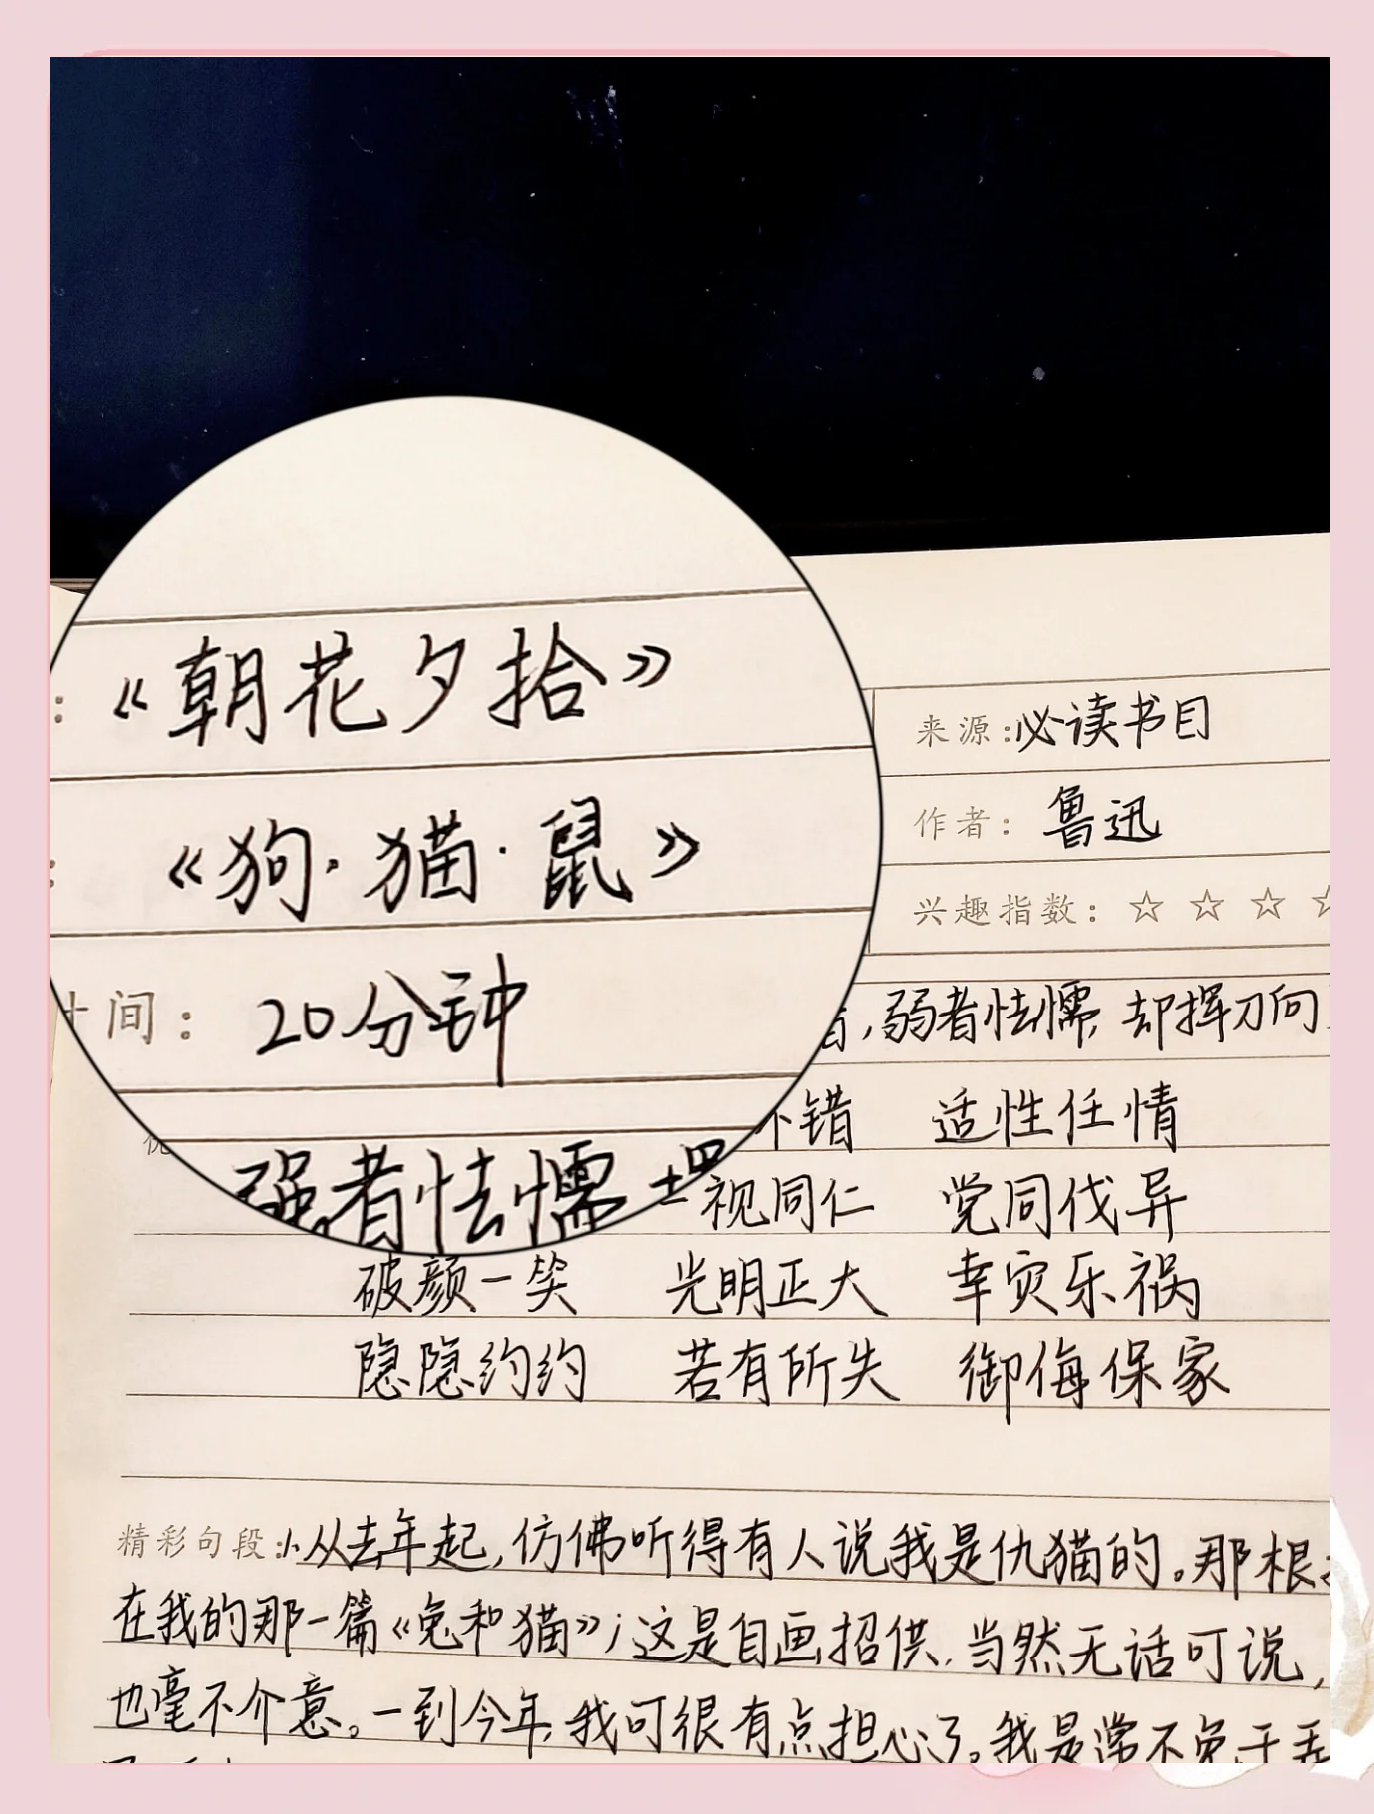 《朝花夕拾》
《狗·猫·鼠》
间: 20分钟
弱者怯懦
来源:必读书目
作者: 鲁迅
兴趣指数: ☆ ☆ ☆ ☆
,弱者怯懦,却挥刀向
不错 适性任情
一视同仁 党同伐异
破颜一笑 光明正大 幸灾乐祸
隐隐约约 若有所失 御侮保家
精彩句段:从去年起,仿佛听得有人说我是仇猫的。那根
在我的那一篇《兔和猫》;这是自画招供,当然无话可说,
也毫不介意。一到今年,我可很有点担心了。我是常不免于弄